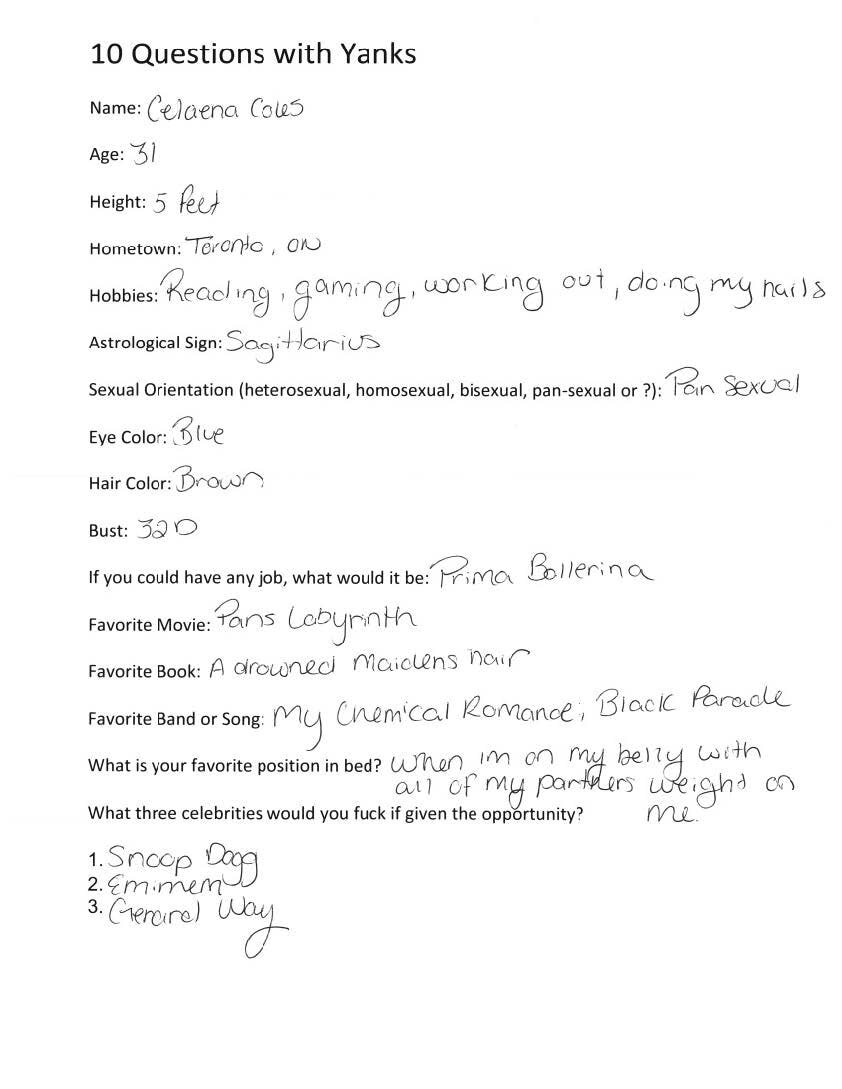 10 Questions with Yanks
Name: Celaena Coles
Age: 31
Height: 5 feet
Hometown: Toronto, ON
Hobbies: Reading, gaming, working out, doing my nails
Astrological Sign: Sagittarius
Sexual Orientation (heterosexual, homosexual, bisexual, pan-sexual or ?): Pan Sexual
Eye Color: Blue
Hair Color: Brown
Bust: 32D
If you could have any job, what would it be: Prima Ballerina
Favorite Movie: Pans Labyrinth
Favorite Book: A drowned maidens hair
Favorite Band or Song: My Chemical Romance, Black Parade
What is your favorite position in bed? When im on my belly with
all of my partners weight on
What three celebrities would you fuck if given the opportunity? me.
1. Snoop Dogg
2. Eminem
3. Gerard Way